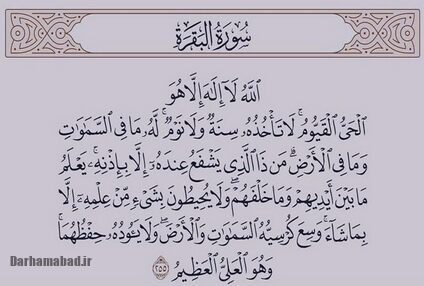 سُورَةُ البَقَرَةِ
ٱللَّهُ لَآ إِلَٰهَ إِلَّا هُوَ
ٱلۡحَيُّ ٱلۡقَيُّومُۚ لَا تَأۡخُذُهُۥ سِنَةٞ وَلَا نَوۡمٞۚ لَّهُۥ مَا فِي ٱلسَّمَٰوَٰتِ
وَمَا فِي ٱلۡأَرۡضِۗ مَن ذَا ٱلَّذِي يَشۡفَعُ عِندَهُۥٓ إِلَّا بِإِذۡنِهِۦۚ يَعۡلَمُ
مَا بَيۡنَ أَيۡدِيهِمۡ وَمَا خَلۡفَهُمۡۖ وَلَا يُحِيطُونَ بِشَيۡءٖ مِّنۡ عِلۡمِهِۦٓ إِلَّا
بِمَا شَآءَۚ وَسِعَ كُرۡسِيُّهُ ٱلسَّمَٰوَٰتِ وَٱلۡأَرۡضَۖ وَلَا يَـُٔودُهُۥ حِفۡظُهُمَاۚ
وَهُوَ ٱلۡعَلِيُّ ٱلۡعَظِيمُ ٢٥٥
Darhamabad.ir